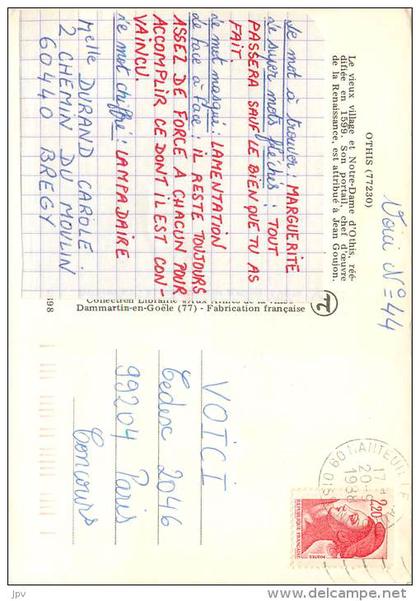 OTHIS (77230)
Le vieux village et Notre-Dame d'Othis, réé-
difiée en 1599. Son portail, chef d'œuvre
de la Renaissance, est attribué à Jean Goujon.
Voici N° 44
Le mot à trouver: MARGUERITE
Le super mots fléchés: TOUT
PASSERA SAUF LE BIEN QUE TU AS
FAIT.
Le mot masqué: LAMENTATION
de face à face: IL RESTE TOUJOURS
ASSEZ DE FORCE A CHACUN POUR
ACCOMPLIR CE DONT IL EST CON-
VAINCU.
Le mot chiffré: LAMPADAIRE
Melle DURAND CAROLE
2 CHEMIN DU MOULIN
60440 BREGY
Dammartin-en-Goële (77) - Fabrication française
VOICI
Cedex 2046
99204 Paris
Concours
60 NANTEUIL
17 H
20-9
1988
OISE
2,20
REPUBLIQUE FRANÇAISE
POSTES
JPV